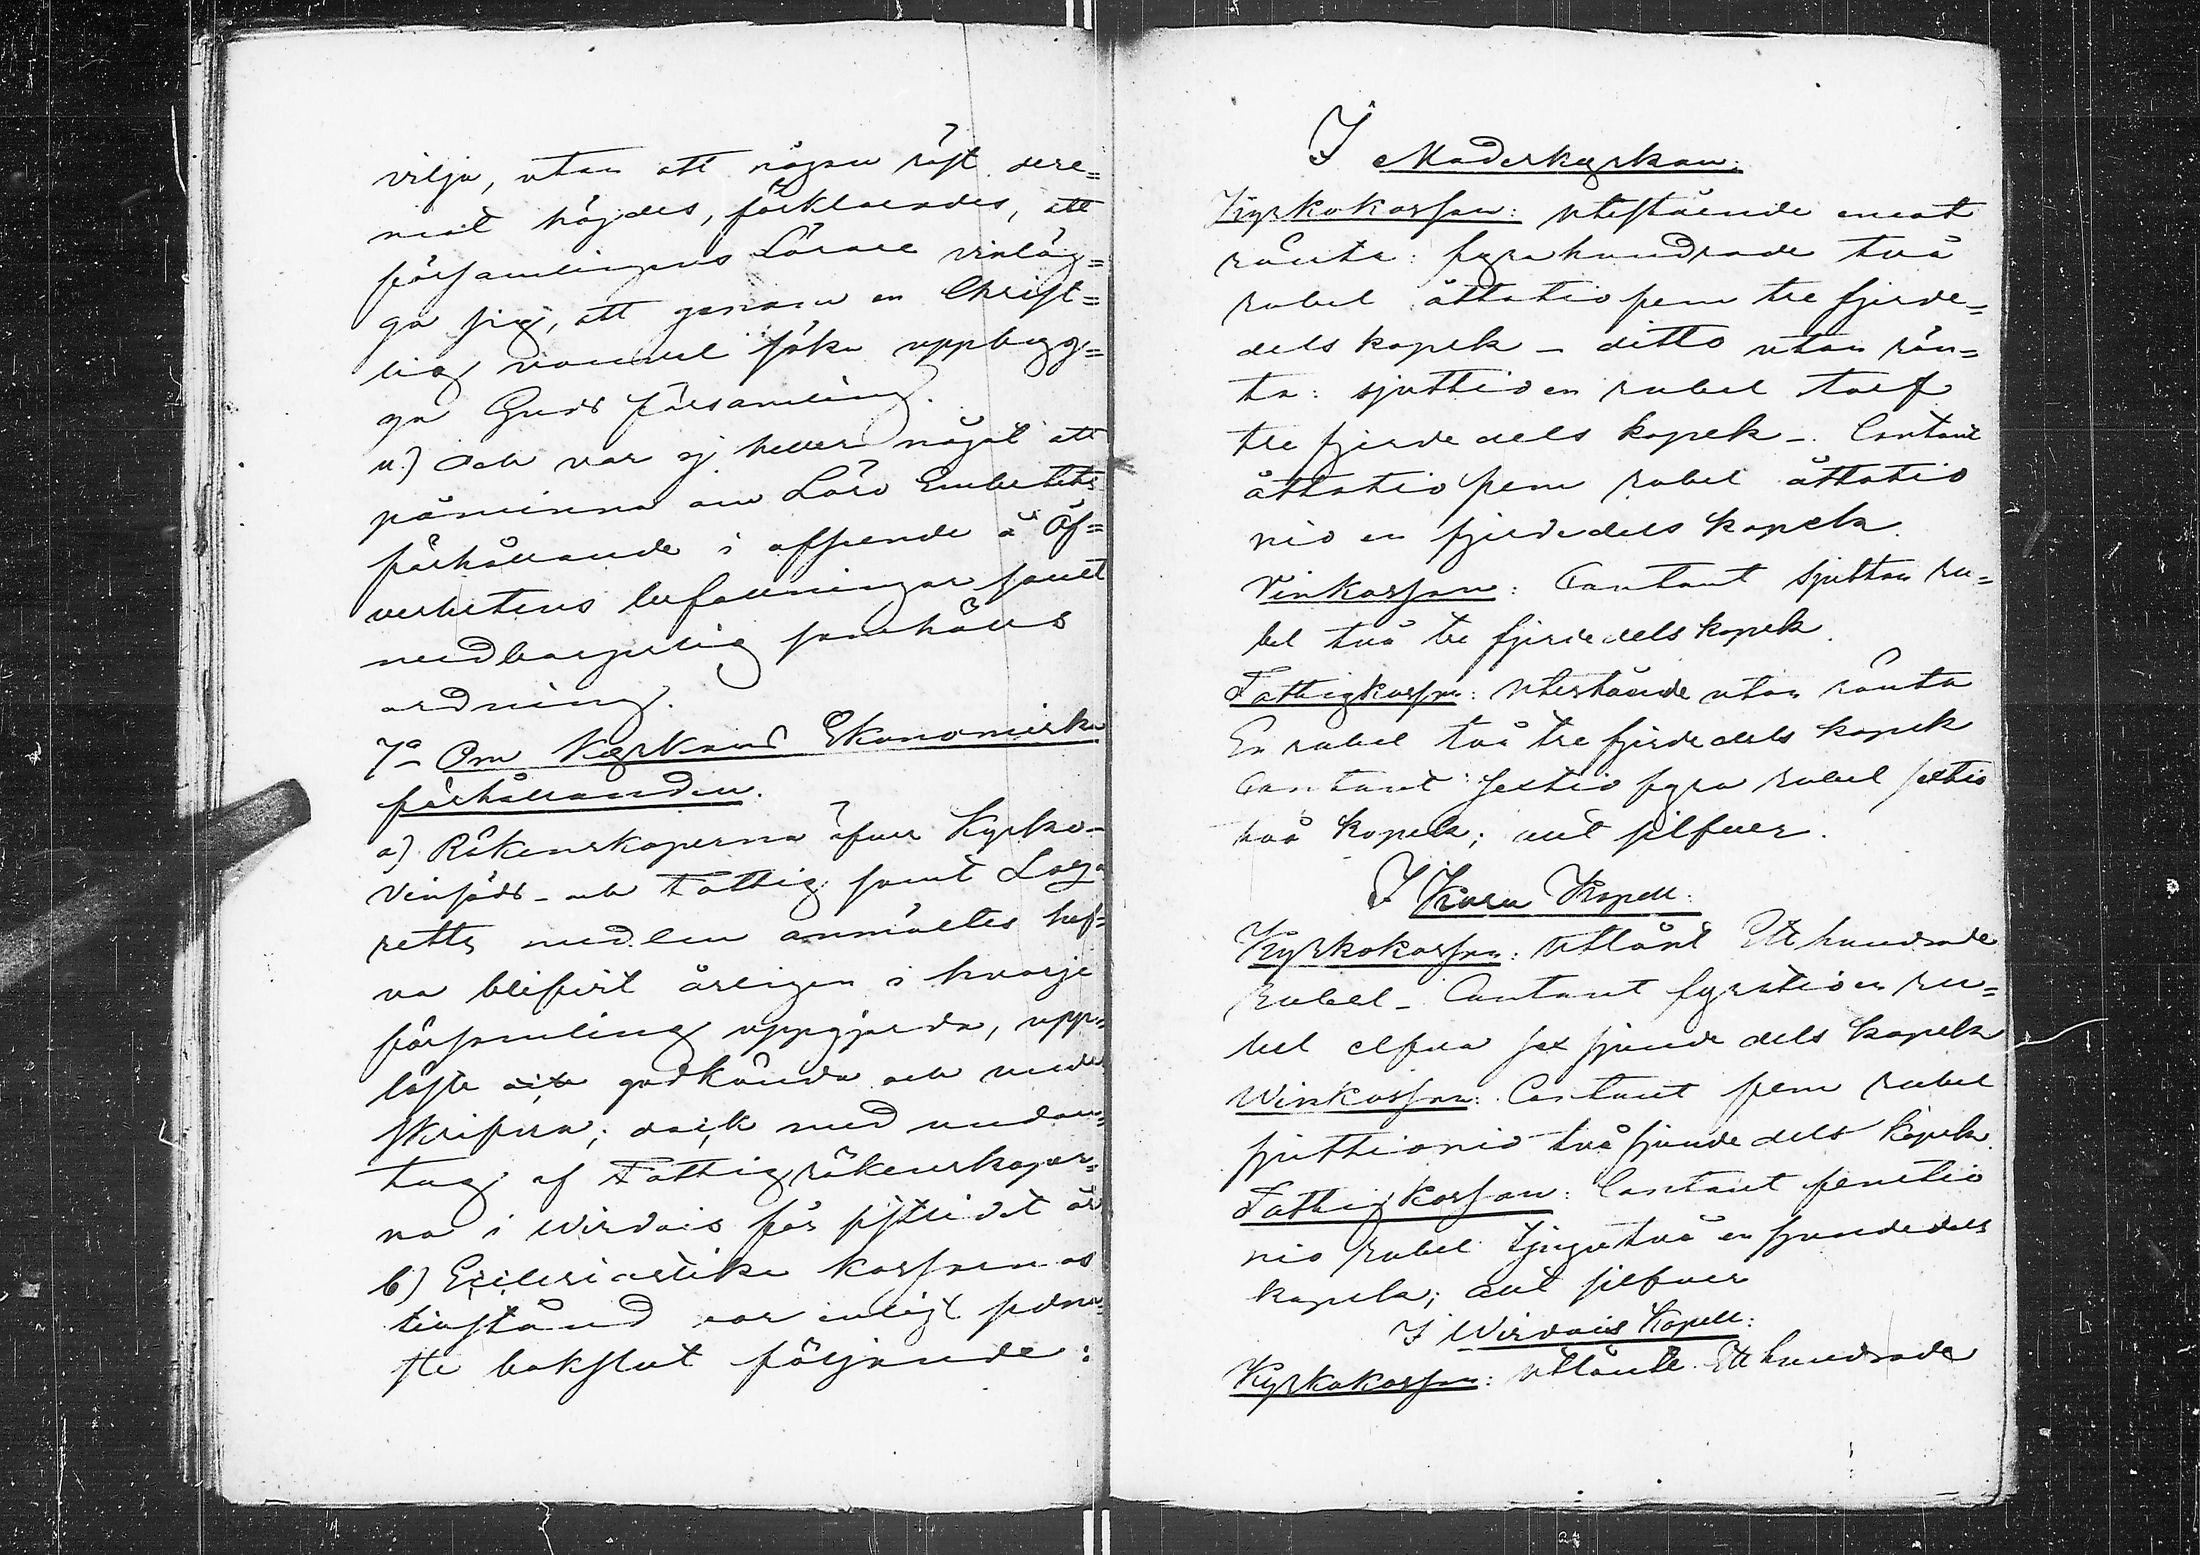 vilja, utan att någon röst dere=
mot höjdes, förklarades, att
församlingens Lärare vinläg=
ga sig, att genom en Christ=
lig vandel söka uppbygg=
ga Guds församling.
n.) Och var ej heller något att
påminna om Läro Embetets
förhållande i afseende å Öf=
verhetens befallningar samt
medborgerlig samhälls
ordning.
7o Om Kyrkans Ekonomiska
förhållanden.
a) Räkenskaperna öfver Kyrko-
Vinsäds- och Fattig samt Laga
retts medlen anmältes haf=
va blifvit årligen i hvarje
församling uppgjorda, upp=
läste godkända och under
skrifna; dock med undan=
tag af Fattig räkenskaper=
na i Wirdois för sistlidet år
b) Ecclesiastike kassornas
tillstånd var enligt sedna=
ste bokslut följande:
I Moderkyrkan:
Kyrkokassan: utestående emot
ränta: fyrahundrade två
rubel åttatio fem tre fjerde=
dels kopek – ditto utan rän=
ta: sjuttio en rubel tolf
tre fjerdedels kopek –. Contant
åttatio fem rubel åttatio
nio en fjerdedels kopek.
Vinkassan: Contant sjutton ru=
bel två tre fjerdedels kopek.
Fattigkassan: Utestående utan ränta
En rubel två tre fjerdedels kopek
Contant sextio fyra rubel sextio
två kopek; allt silfver.
I Kuru Kapell:
Kyrkokassan: Utlånt Etthundrade
rubel – Contant fyratio en ru=
bel elfva sex sjunde dels kopek
Winkassan: Contant fem rubel
sjuttionio två sjunde dels kopek.
Fattigkassan: Contant femtio
nio rubel tjugutvå en sjundedels
kopek; allt silfver
I Wirdois Kapell:
Kyrkokassan: utlånte Etthundrade